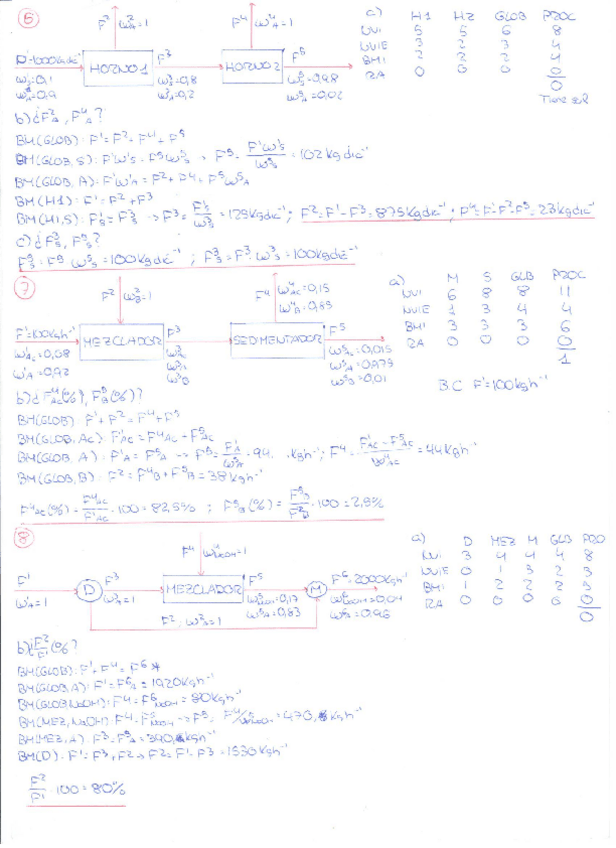 6
F² ω²A=1
F⁴ ω⁴A=1
F¹=1000kgdía⁻¹
ω¹S=0,1
ω¹A=0,9
HORNO 1
F³
ω³S=0,8
ω³A=0,2
HORNO 2
F⁵
ω⁵S=0,98
ω⁵A=0,02
c) H1 H2 GLOB PROC
NVI 5 5 6 8
NVIE 3 2 3 4
BMI 2 2 2 4
RA 0 0 0 0
0
Tiene sol
b) ¿F²A, F⁴A?
BM(GLOB): F¹=F²+F⁴+F⁵
BM(GLOB,S): F¹ω¹S=F⁵ω⁵S → F⁵=F¹ω¹S/ω⁵S=102kgdía⁻¹
BM(GLOB, A): F¹ω¹A=F²+F⁴+F⁵ω⁵A
BM(H1): F¹=F²+F³
BM(H1,S): F¹S=F³S → F³=F¹S/ω³S=125kgdía⁻¹; F²=F¹-F³=875kgdía⁻¹; F⁴=F¹-F²-F⁵=23kgdía⁻¹
c) ¿F³S, F⁵S?
F⁵S=F⁵ω⁵S=100kgdía⁻¹; F³S=F³ω³S=100kgdía⁻¹
7
F² ω²B=1
F⁴ ω⁴AC=0,15
ω⁴B=0,85
F¹=100kgh⁻¹
ω¹AC=0,08
ω¹A=0,92
MEZCLADOR
F³
ω³AC
ω³A
ω³B
SEDIMENTADOR
F⁵
ω⁵AC=0,015
ω⁵A=0,975
ω⁵B=0,01
a) M S GLB PROC
NVI 6 8 8 11
NVIE 1 3 4 4
BMI 3 3 3 6
RA 0 0 0 0
1
B.C F¹=100kgh⁻¹
b) ¿F⁴AC(%), F⁵B(%)?
BM(GLOB) F¹+F²=F⁴+F⁵
BM(GLOB, AC): F¹AC=F⁴AC+F⁵AC
BM(GLOB, A): F¹A=F⁵A → F⁵=F¹A/ω⁵A=94 kgh⁻¹; F⁴=F¹AC-F⁵AC/ω⁴AC=44kgh⁻¹
BM(GLOB, B): F²=F⁴B+F⁵B=38kgh⁻¹
F⁴AC(%)=F⁴AC/F¹AC·100=82,5%; F⁵B(%)=F⁵B/F²B·100=2,5%
8
F⁴ ω⁴NaOH=1
F¹
ω¹A=1
D
F³
ω³A=1
MEZCLADOR
F⁵
ω⁵NaOH=0,17
ω⁵A=0,83
M
F⁶=2000kgh⁻¹
ω⁶NaOH=0,04
ω⁶A=0,96
F², ω²A=1
a) D MEZ M GLB PRO
NVI 3 4 4 4 8
NVIE 0 1 3 2 3
BMI 1 2 2 2 5
RA 0 0 0 0 0
0
b) ¿F²/F¹(%)?
BM(GLOB): F¹+F⁴=F⁶
BM(GLOB,A): F¹=F⁶A=1920kgh⁻¹
BM(GLOB,NaOH): F⁴=F⁶NaOH=80kgh⁻¹
BM(MEZ,NaOH): F⁴=F⁵NaOH → F⁵=F⁴/ω⁵NaOH=470,6kgh⁻¹
BM(MEZ,A) F³=F⁵A=390,6kgh⁻¹
BM(D): F¹=F³+F² → F²=F¹-F³=1530kgh⁻¹
F²/F¹·100=80%